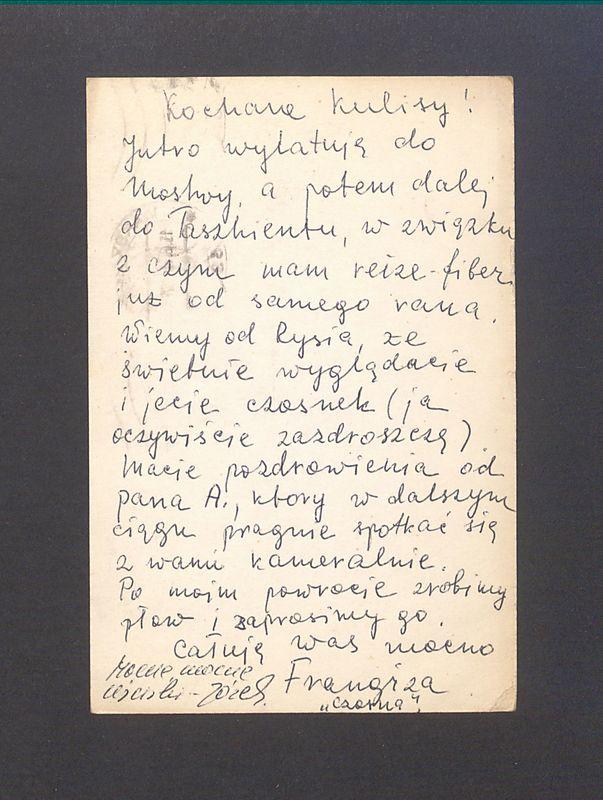 Kochane Kulisy!
Jutro wylatują do
Moskwy, a potem dalej
do Taszkientu, w związku
z czym mam reize-fiber
już od samego rana.
Wiemy od Rysia, że
świetnie wyglądacie
i jecie czosnek (ja
oczywiście zazdroszczę)
Macie pozdrowienia od
pana A., ktory w dalszym
ciągu pragnie spotkać się
z wami kameralnie.
Po moim powrocie zrobimy
płow i zaprosimy go.
Całuję was mocno
Frangiza
"czarna".
Mocne mocne
uściski - Józek.